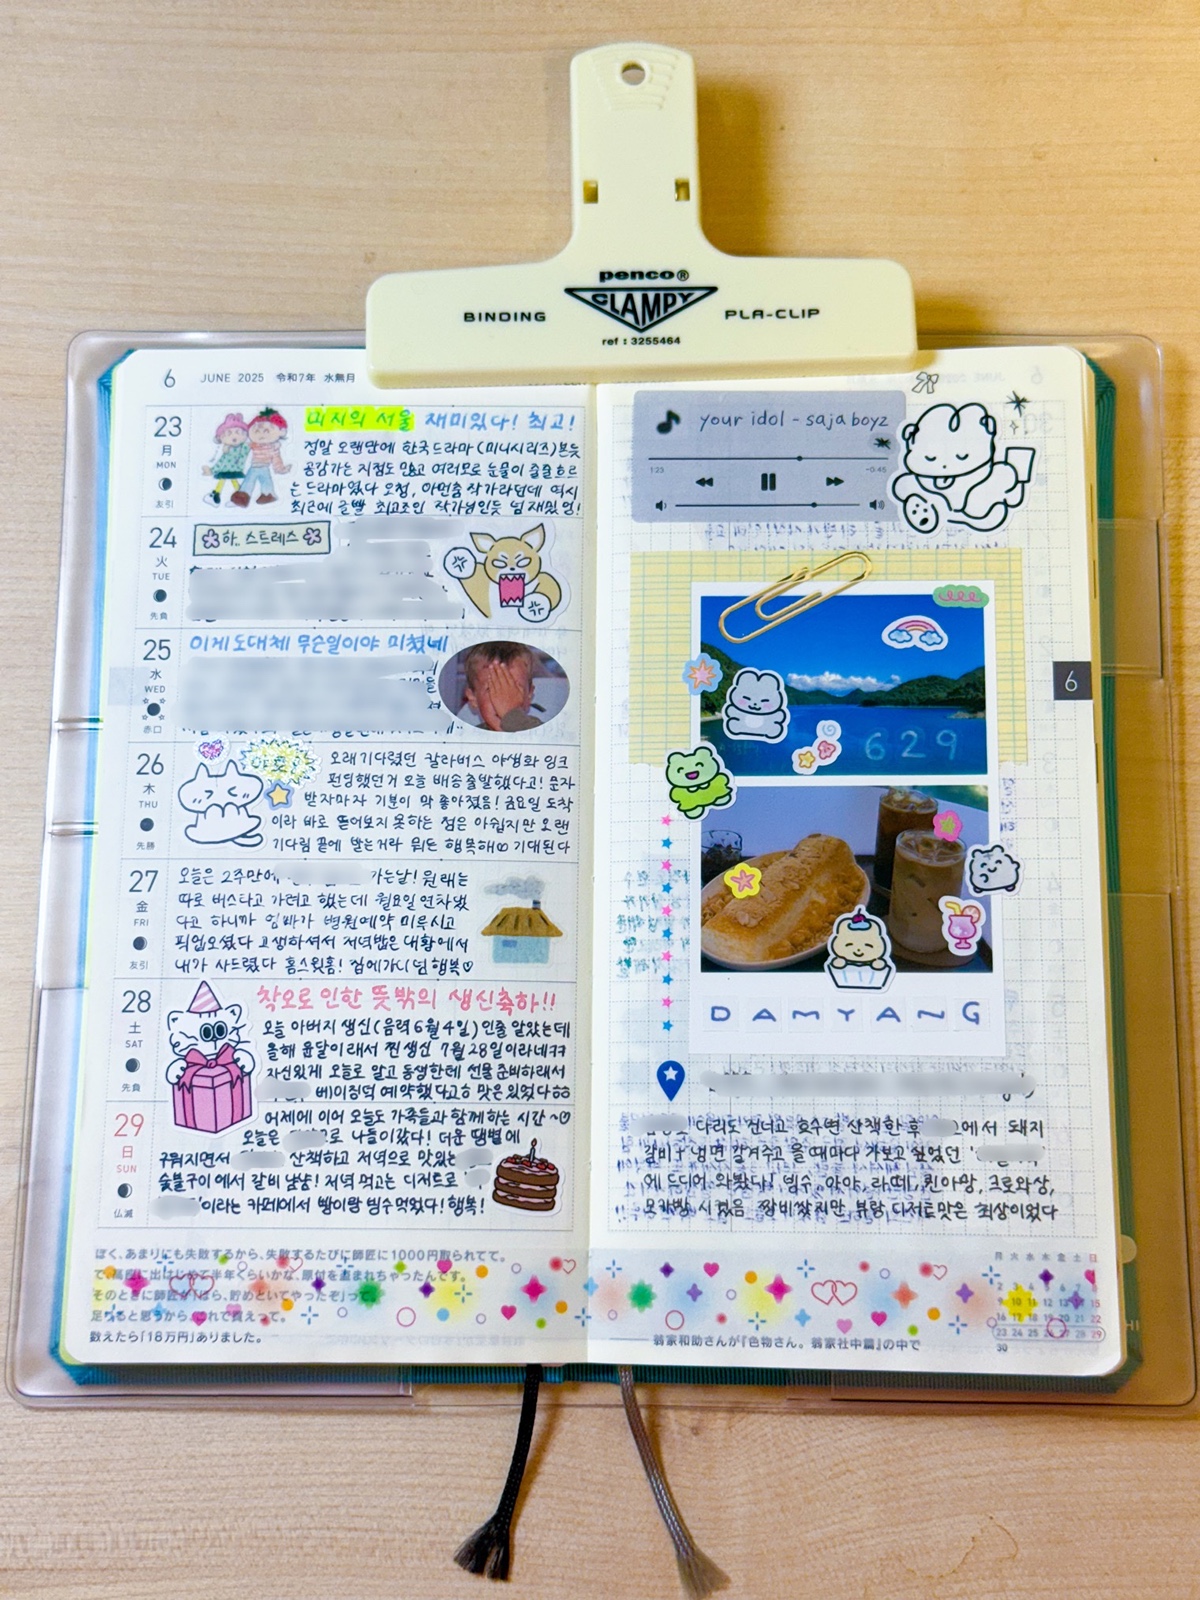 penco®
CLAMPY
BINDING PLA-CLIP
ref : 3255464
6 JUNE 2025 令和7年 水無月
23 月 MON 友引
미지의 서울 재미있다! 최고!
정말 오랜만에 한국드라마(미니시리즈)본듯
공감가는 지점도 많고 여러모로 눈물이 줄줄흐르
는 드라마였다 오청, 아먼춤 작가라던데 역시
최근에 글빨 최고조인 작가님인듯 넘 재밌엉!
24 火 TUE 先負
하.. 스트레스
25 水 WED 赤口
이게 도대체 무슨일이야 미쳤네
26 木 THU 先勝
오래기다렸던 칼라버스 야생화 잉크
펀딩했던거 오늘 배송출발했다고! 문자
받자마자 기분이 막 좋아졌음! 금요일 도착
이라 바로 뜯어보지 못하는 점은 아쉽지만 오랜
기다림 끝에 받는거라 뭐든 행복해♡ 기대된다
27 金 FRI 友引
오늘은 2주만에 가는날! 원래는
따로 버스타고 가려고 했는데 월요일 연차냈
다고 하니까 엄빠가 병원예약 미루시고
픽업오셨다 고생하셔서 저녁밥은 대황에서
내가 사드렸다 홈스윗홈! 집에가니 넘행복♡
28 土 SAT 先負
착오로 인한 뜻밖의 생신축하!!
오늘 아버지 생신(음력 6월 4일)인줄 알았는데
올해 윤달이래서 찐생신 7월 28일이라네ㅋㅋ
자신있게 오늘로 알고 동생한테 선물 준비하래서
베이징덕 예약했다고ㅎ 맛은 있었다ㅎㅎ
29 日 SUN 仏滅
어제에 이어 오늘도 가족들과 함께하는 시간~♡
오늘은 로 나들이갔다! 더운 땡볕에
구워지면서 산책하고 저녁으로 맛있는
숯불구이에서 갈비 냠냠! 저녁 먹고는 디저트로
이라는 카페에서 빵이랑 빙수 먹었다! 행복!
ぼく、あまりにも失敗するから、失敗するたびに師匠に1000円取られてて。
で、高座に出はじめて半年くらいかな、原付を盗まれちゃったんです。
そのときに師匠が「ほら、貯めといてやったぞ」って。
足りると思うから、これで買えって。
数えたら「18万円」ありました。
your idol - saja boyz
1:23 -0:46
629
DAMYANG
다리도 건너고 호수변 산책한 후 에서 돼지
갈비+냉면 갈겨주고 올때마다 가보고 싶었던
에 드디어 와봤다! 빙수, 아아, 라떼, 퀸아망, 크로와상,
모카빵 시켰음 짱비쌌지만 뷰랑 디저트맛은 최상이었다
6
翁家和助さんが『色物さん。翁家社中篇』の中で
月 火 水 木 金 土 日
2 3 4 5 6 7 8
9 10 11 12 13 14 15
16 17 18 19 20 21 22
23 24 25 26 27 28 29
30